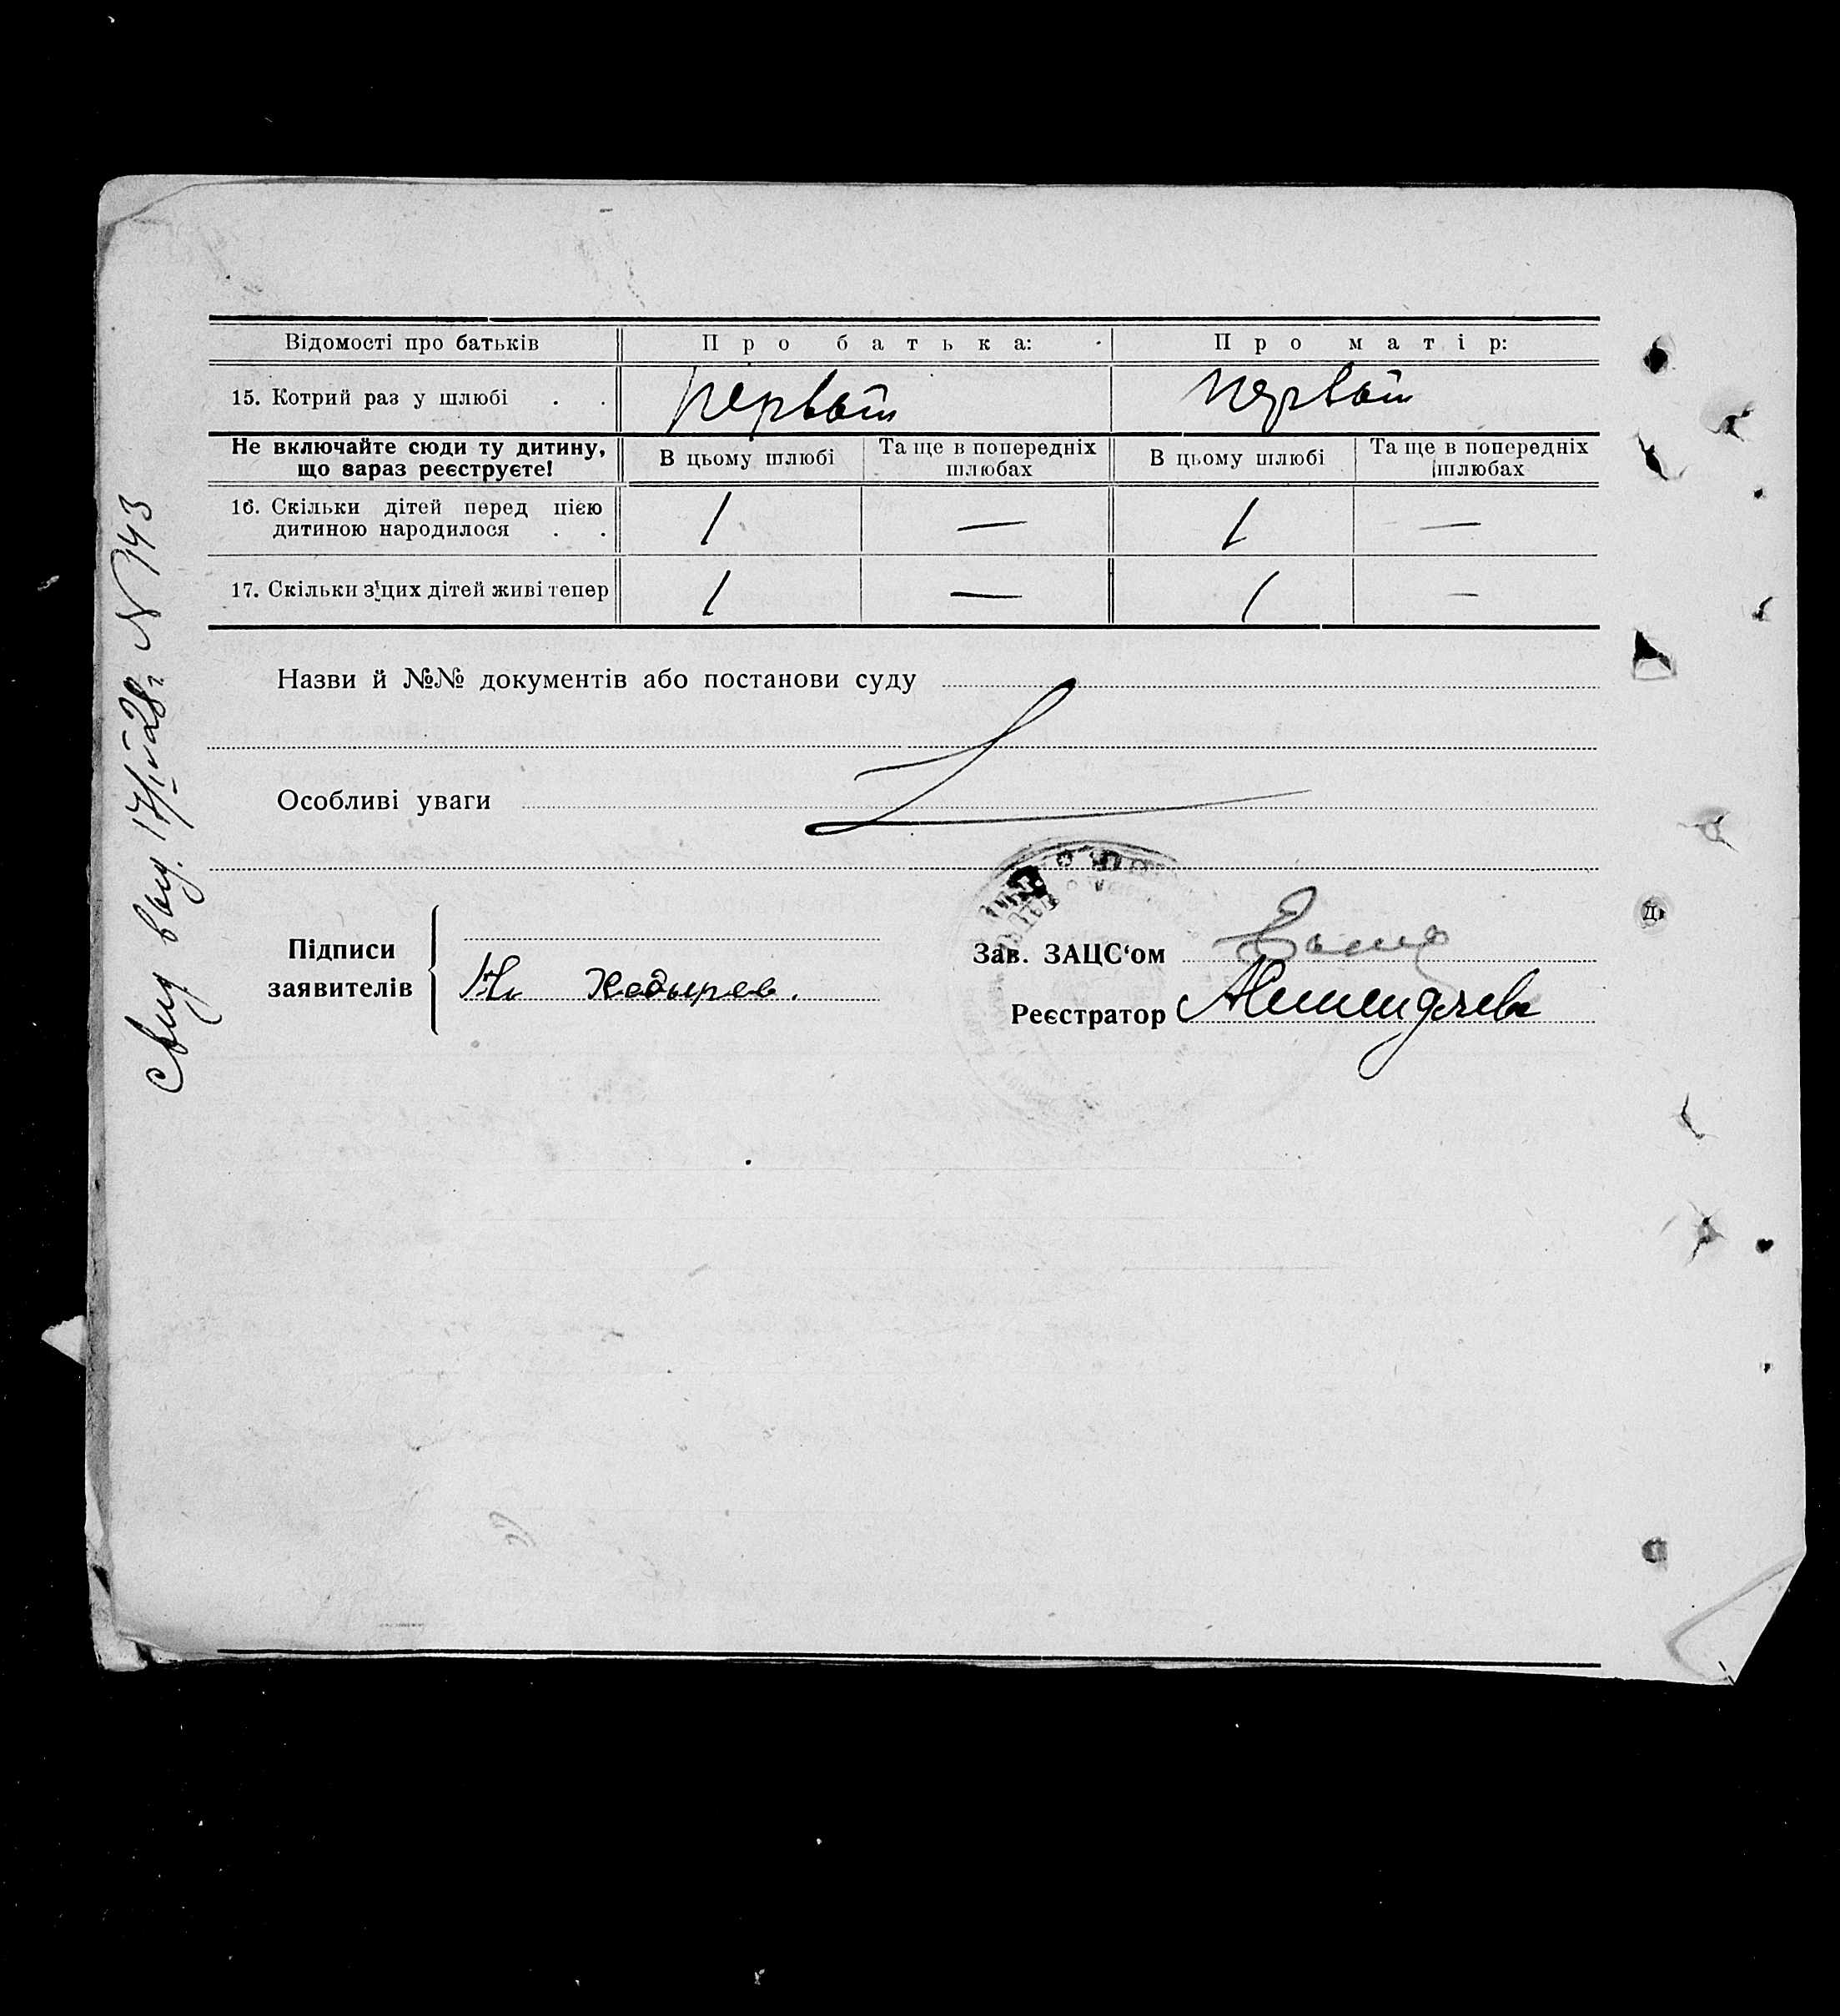 Відомості про батьків Про батька: Про матір:
15. Котрий раз у шлюбі . . первый первый
Не включайте сюди ту дитину, що зараз реєструєте!
В цьому шлюбі Та ще в попередніх шлюбах В цьому шлюбі Та ще в попередніх шлюбах
16. Скільки дітей перед цією
дитиною народилося . . 1 — 1 —
17. Скільки з цих дітей живі тепер 1 — 1 —
Назви й №№ документів або постанови суду
Особливі уваги
Підписи
заявителів
Зав. ЗАЦС‘ом
Реєстратор
Свид. выд. 17/IV 28 г. N 743